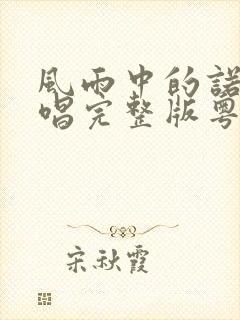 風雨中的諾
唱完整版粵
宋秋霞